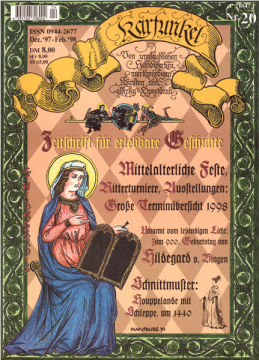 ISSN 0944-2677
Dez.'97-Feb.'98
DM 8,00
sFr 8,00
öS 65,00
Karfunkel
Nr 20
Von unglaublichen
Handwerken,
merkwürdigen
Künsten und
Zeitschrift für erlebbare Geschichte
Mittelalterliche Feste,
Ritterturniere, Ausstellungen:
Große Terminübersicht 1998
Umarmt vom lebendigen Licht:
Zum 900. Geburtstag von
Hildegard v. Bingen
Schnittmuster:
Houppelande mit
Schleppe, um 1440